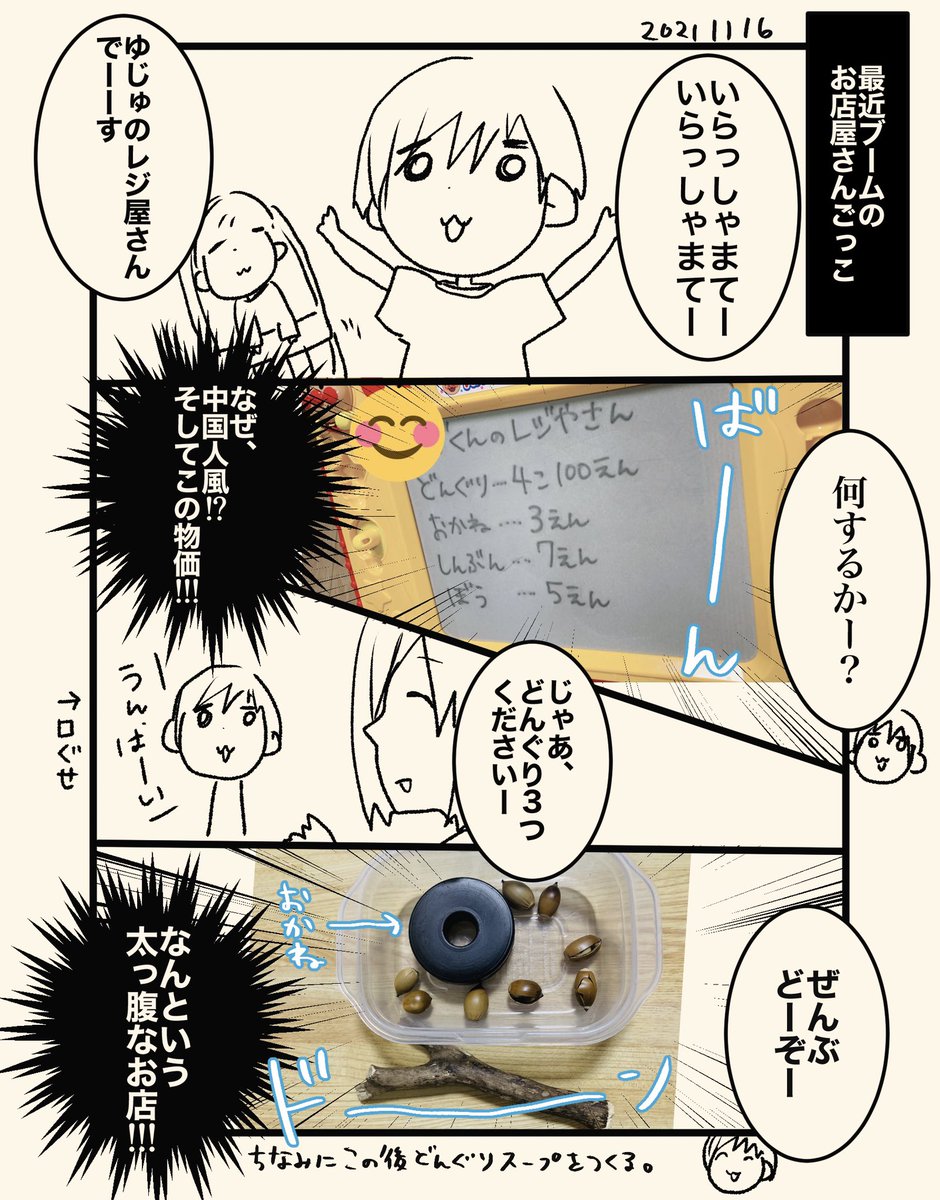 20211116
最近ブームの
お店屋さんごっこ
いらっしゃまてー
いらっしゃまてー
ゆじゅのレジ屋さん
でーーす
何するかー？
ばーん
くんのレジやさん
どんぐり…4こ100えん
おかね…3えん
しんぶん…7えん
ぼう…5えん
なぜ、
中国人風!?
そしてこの物価!!!
じゃあ、
どんぐり3つ
くださいー
うん、はーい
→口ぐせ
ぜんぶ
どーぞー
おかね→
ドーン
なんという
太っ腹なお店!!!
ちなみにこの後どんぐりスープをつくる。